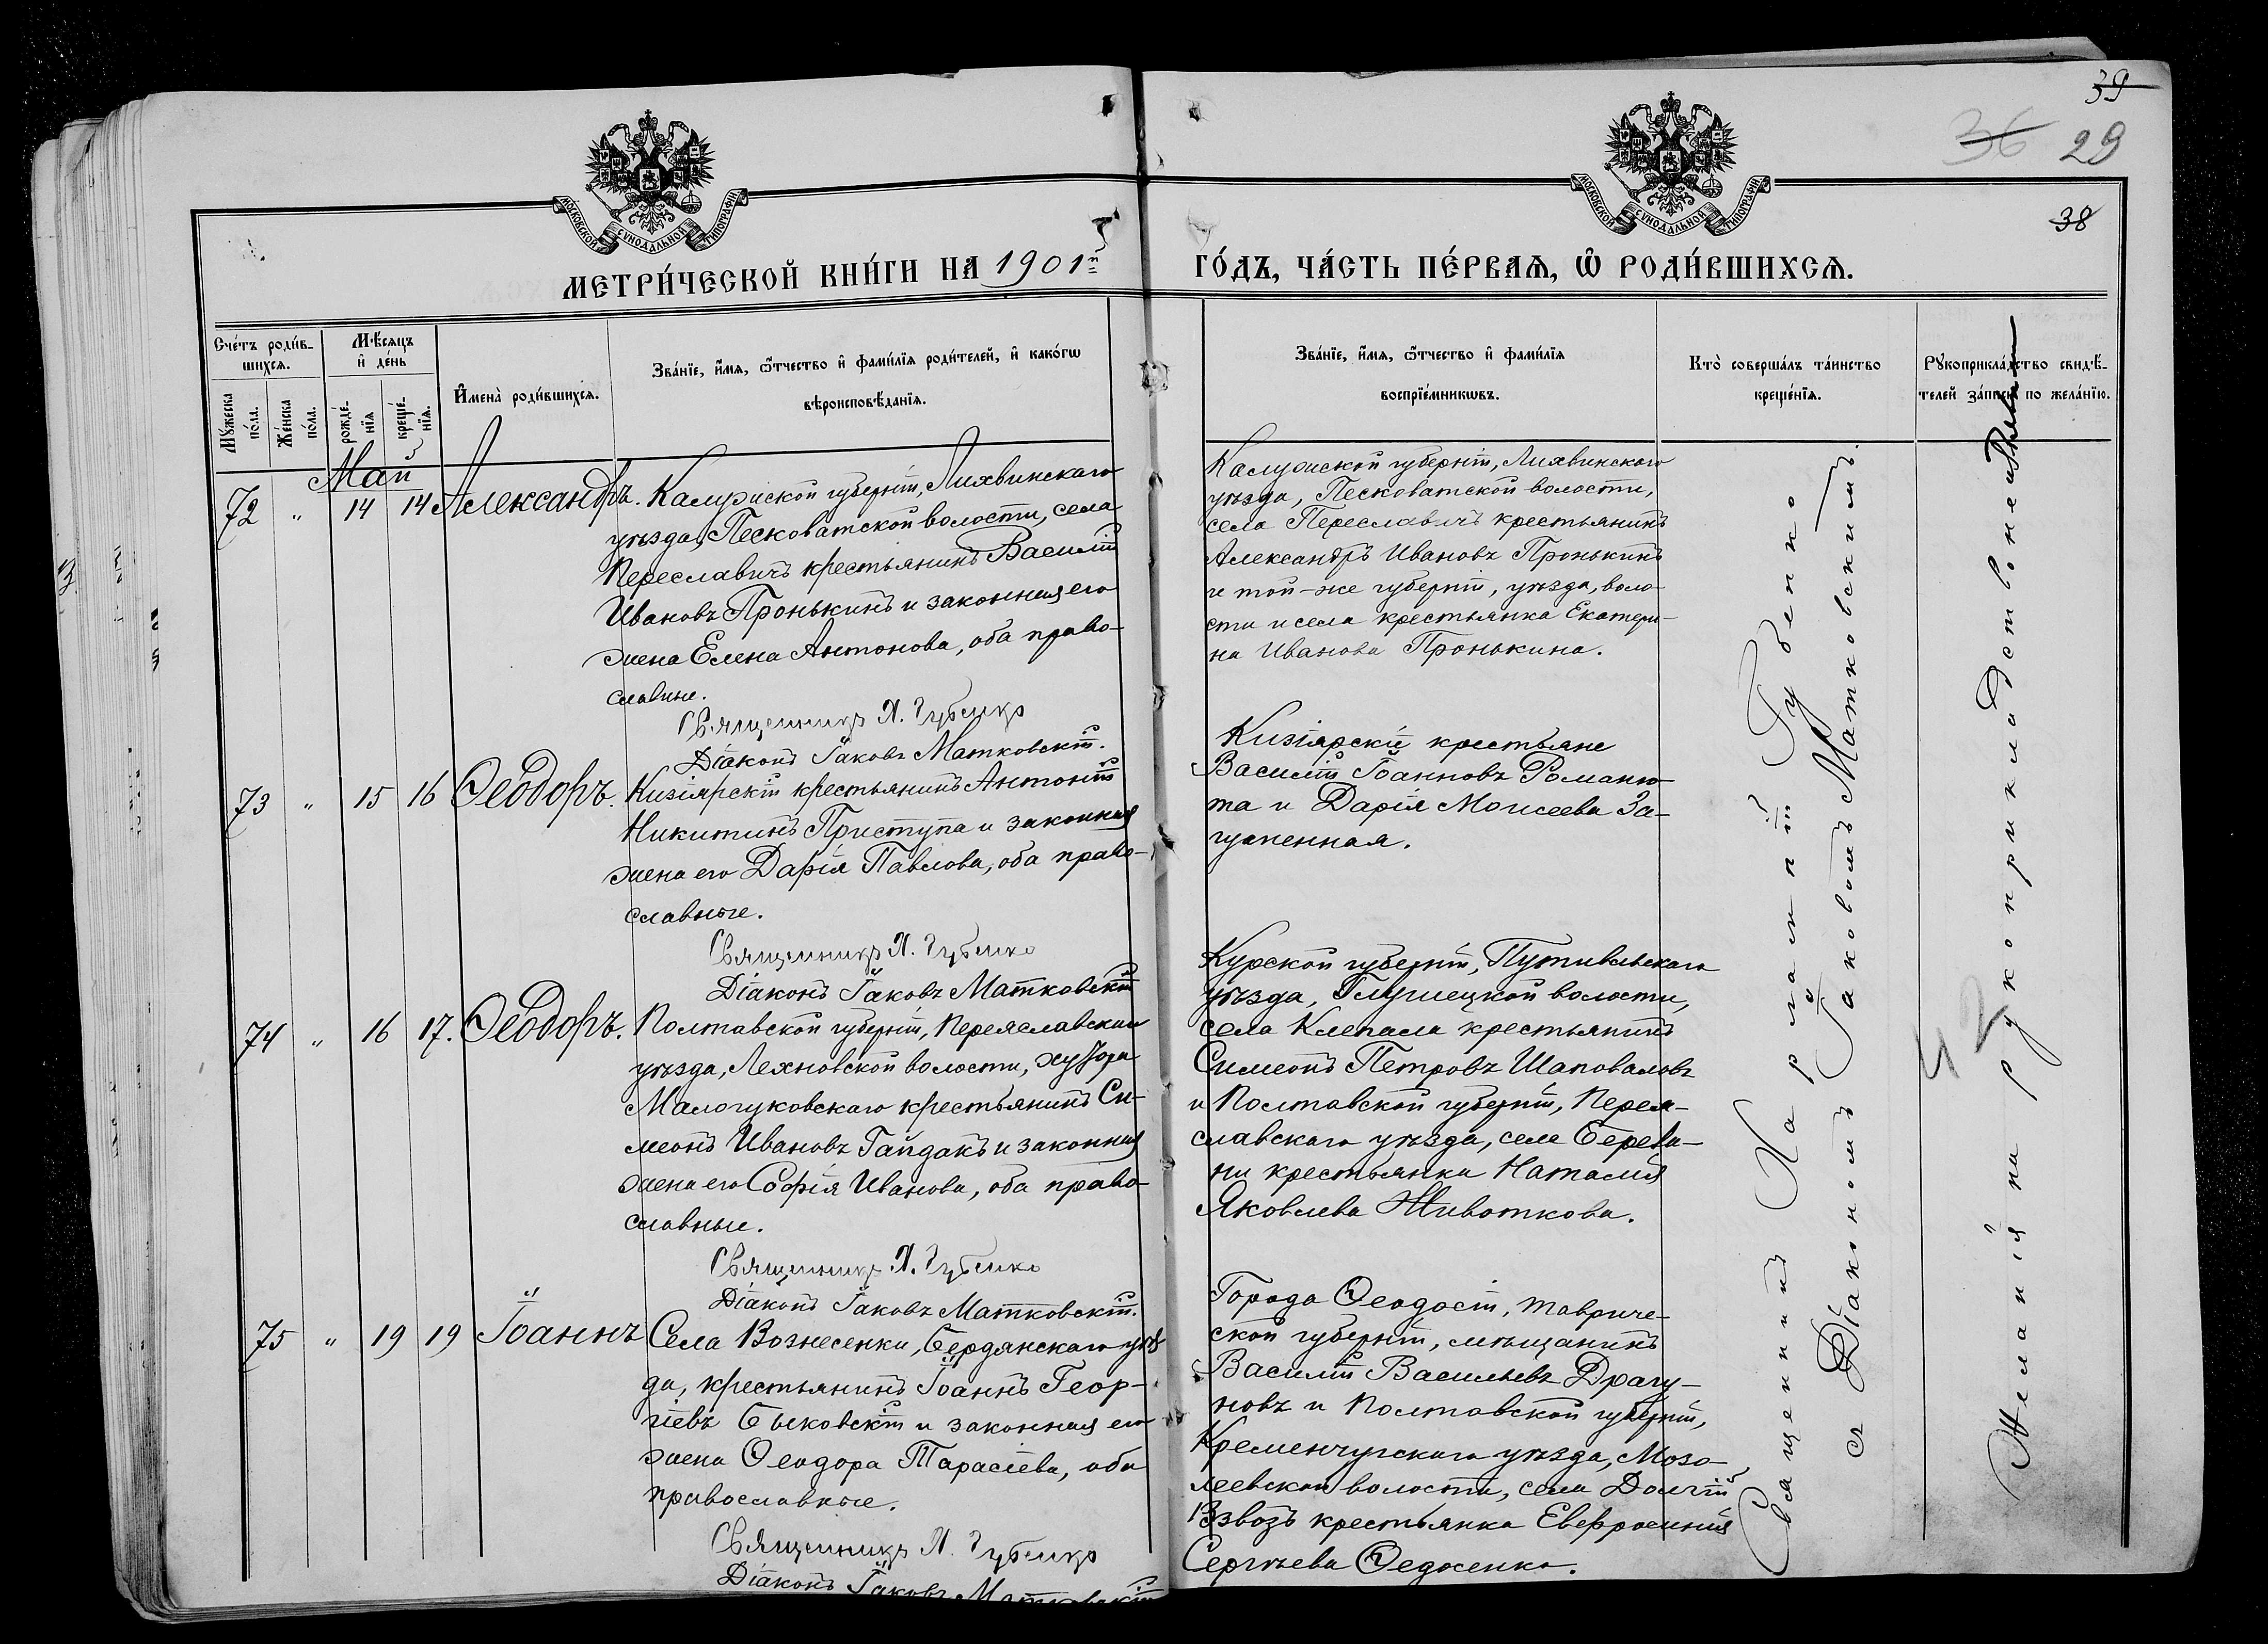 39
36 29
38
МОСКОВСКОЙ СѴНОДАЛЬНОЙ ТИПОГРАФІИ
МОСКОВСКОЙ СѴНОДАЛЬНОЙ ТИПОГРАФІИ
МЕТРИ́ЧЕСКОЙ КНИ́ГИ НА 1901й
ГО́ДЪ, ЧА́СТЬ ПЕ́РВАѦ, Ѡ РОДИ́ВШИХСѦ.
Сче́тъ роди́в-
шихсѧ.
Мꙋжеска по́ла.
Же́нска по́ла.
Мѣ́сѧцъ
и де́нь
рожде́-
нїѧ
креще́-
нїѧ.
Имена̀ роди́вшихсѧ.
Зва́нїе, и́мѧ, ѻ́тчество и фами́лїѧ роди́телей, и како́гѡ
вѣроисповѣ́данїѧ.
Зва́нїе, и́мѧ, ѻ́тчество и фами́лїѧ
воспрїе́мникѡвъ.
Кто̀ соверша́лъ та́инство
креще́нїѧ.
Рꙋкоприкла́дство свидѣ́-
телей за́писи по жела́нїю.
Май
72 " 14 14 Александръ.
Калужской губерніи, Лихвинскаго
уѣзда, Песковатской волости, села
Переславичъ крестьянинъ Василій
Ивановъ Пронькинъ и законная его
жена Елена Антонова, оба право-
славные.
Священникъ Х. Губенко
Діаконъ Іаковъ Матковскій.
Калужской губерніи, Лихвинского
уѣзда, Песковатской волости,
села Переславичъ крестьянинъ
Александръ Ивановъ Пронькинъ
и той-же губерніи, уѣзда, воло-
сти и села крестьянка Екатери-
на Иванова Пронькина.
73 " 15 16 Ѳеодоръ.
Кизіярскій крестьянинъ Антоній
Никитинъ Приступа и законная
жена его Дарія Павлова, оба право-
славные.
Священникъ Х. Губенко
Діаконъ Іаковъ Матковскій
Кизіярскіе крестьяне
Василій Іоанновъ Романю-
та и Дарія Моисеева За-
гуменная.
74 " 16 17. Ѳеодоръ.
Полтавской губерніи, Переяславскаго
уѣзда, Лехновской волости, хутора
крестьянинъ Си-
меонъ Ивановъ Гайдакъ и законная
жена его Софія Иванова, оба право-
славные.
Священникъ Х. Губенко
Діаконъ Іаковъ Матковскій.
Курской губерніи, Путивльскаго
уѣзда, волости,
села Клепала крестьянинъ
Симеонъ Петровъ Шаповаловъ
и Полтавской губерніи, Перея-
славскаго уѣзда, села
крестьянка Наталія
Яковлева Животкова.
75 " 19 19 Іоаннъ
Села Вознесенки, Бердянскаго уѣз-
да, крестьянинъ Іоаннъ Геор-
гіевъ Быковскій и законная его
жена Ѳеодора Тарасіева, оба
православные.
Священникъ Х. Губенко
Діаконъ Іаковъ Матковскій
Города Ѳеодосіи, Тавриче-
ской губерніи, мѣщанинъ
Василій Васильевъ Драгу-
новъ и Полтавской губерніи,
Кременчугскаго уѣзда, Мозо-
леевской волости, села Долгій
Взвозъ крестьянка Евфросинія
Сергѣева Ѳедосенко.
Священникъ Харлампій Губенко
съ Діакономъ Іаковомъ Матковскимъ.
Желанія на рукоприкладство не
42